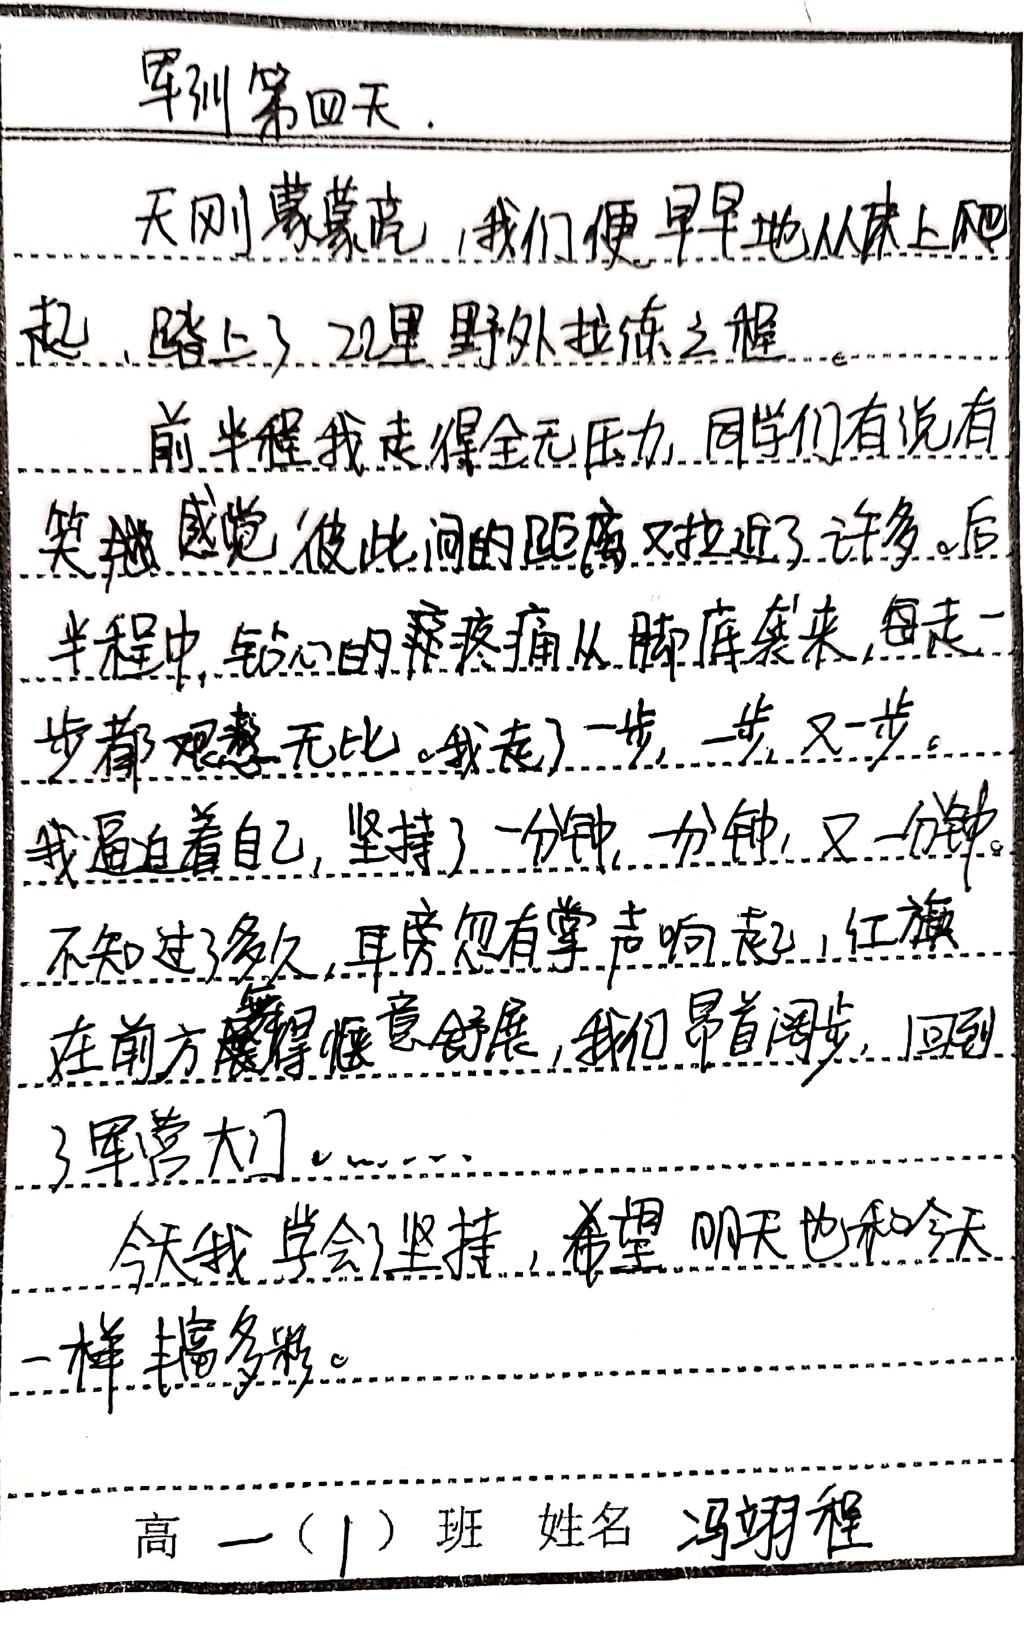 军训第四天.
天刚蒙蒙亮,我们便早早地从床上爬
起,踏上了22里野外拉练之程。
前半程我走得全无压力,同学们有说有
笑,感觉彼此间的距离又拉近了许多。后
半程中,钻心的疼痛从脚底袭来,每走一
步都艰无比。我走了一步,一步,又一步。
我逼迫着自己,坚持了一分钟,一分钟,又一分钟。
不知过了多久,耳旁忽有掌声响起,红旗
在前方舞得惬意舒展,我们昂首阔步,回到
了军营大门。……
今天我学会了坚持,希望明天也和今天
一样丰富多彩。
高一(1)班 姓名 冯翊程